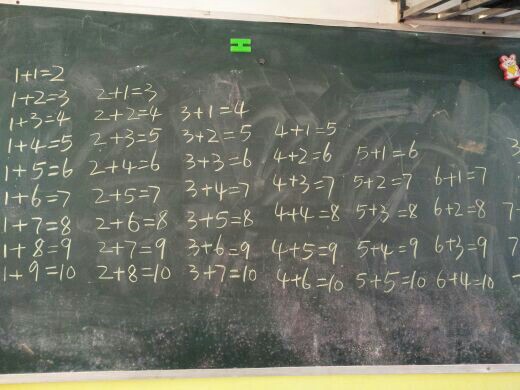 1+1=2
1+2=3 2+1=3
1+3=4 2+2=4 3+1=4
1+4=5 2+3=5 3+2=5 4+1=5
1+5=6 2+4=6 3+3=6 4+2=6 5+1=6
1+6=7 2+5=7 3+4=7 4+3=7 5+2=7 6+1=7
1+7=8 2+6=8 3+5=8 4+4=8 5+3=8 6+2=8
1+8=9 2+7=9 3+6=9 4+5=9 5+4=9 6+3=9
1+9=10 2+8=10 3+7=10 4+6=10 5+5=10 6+4=10